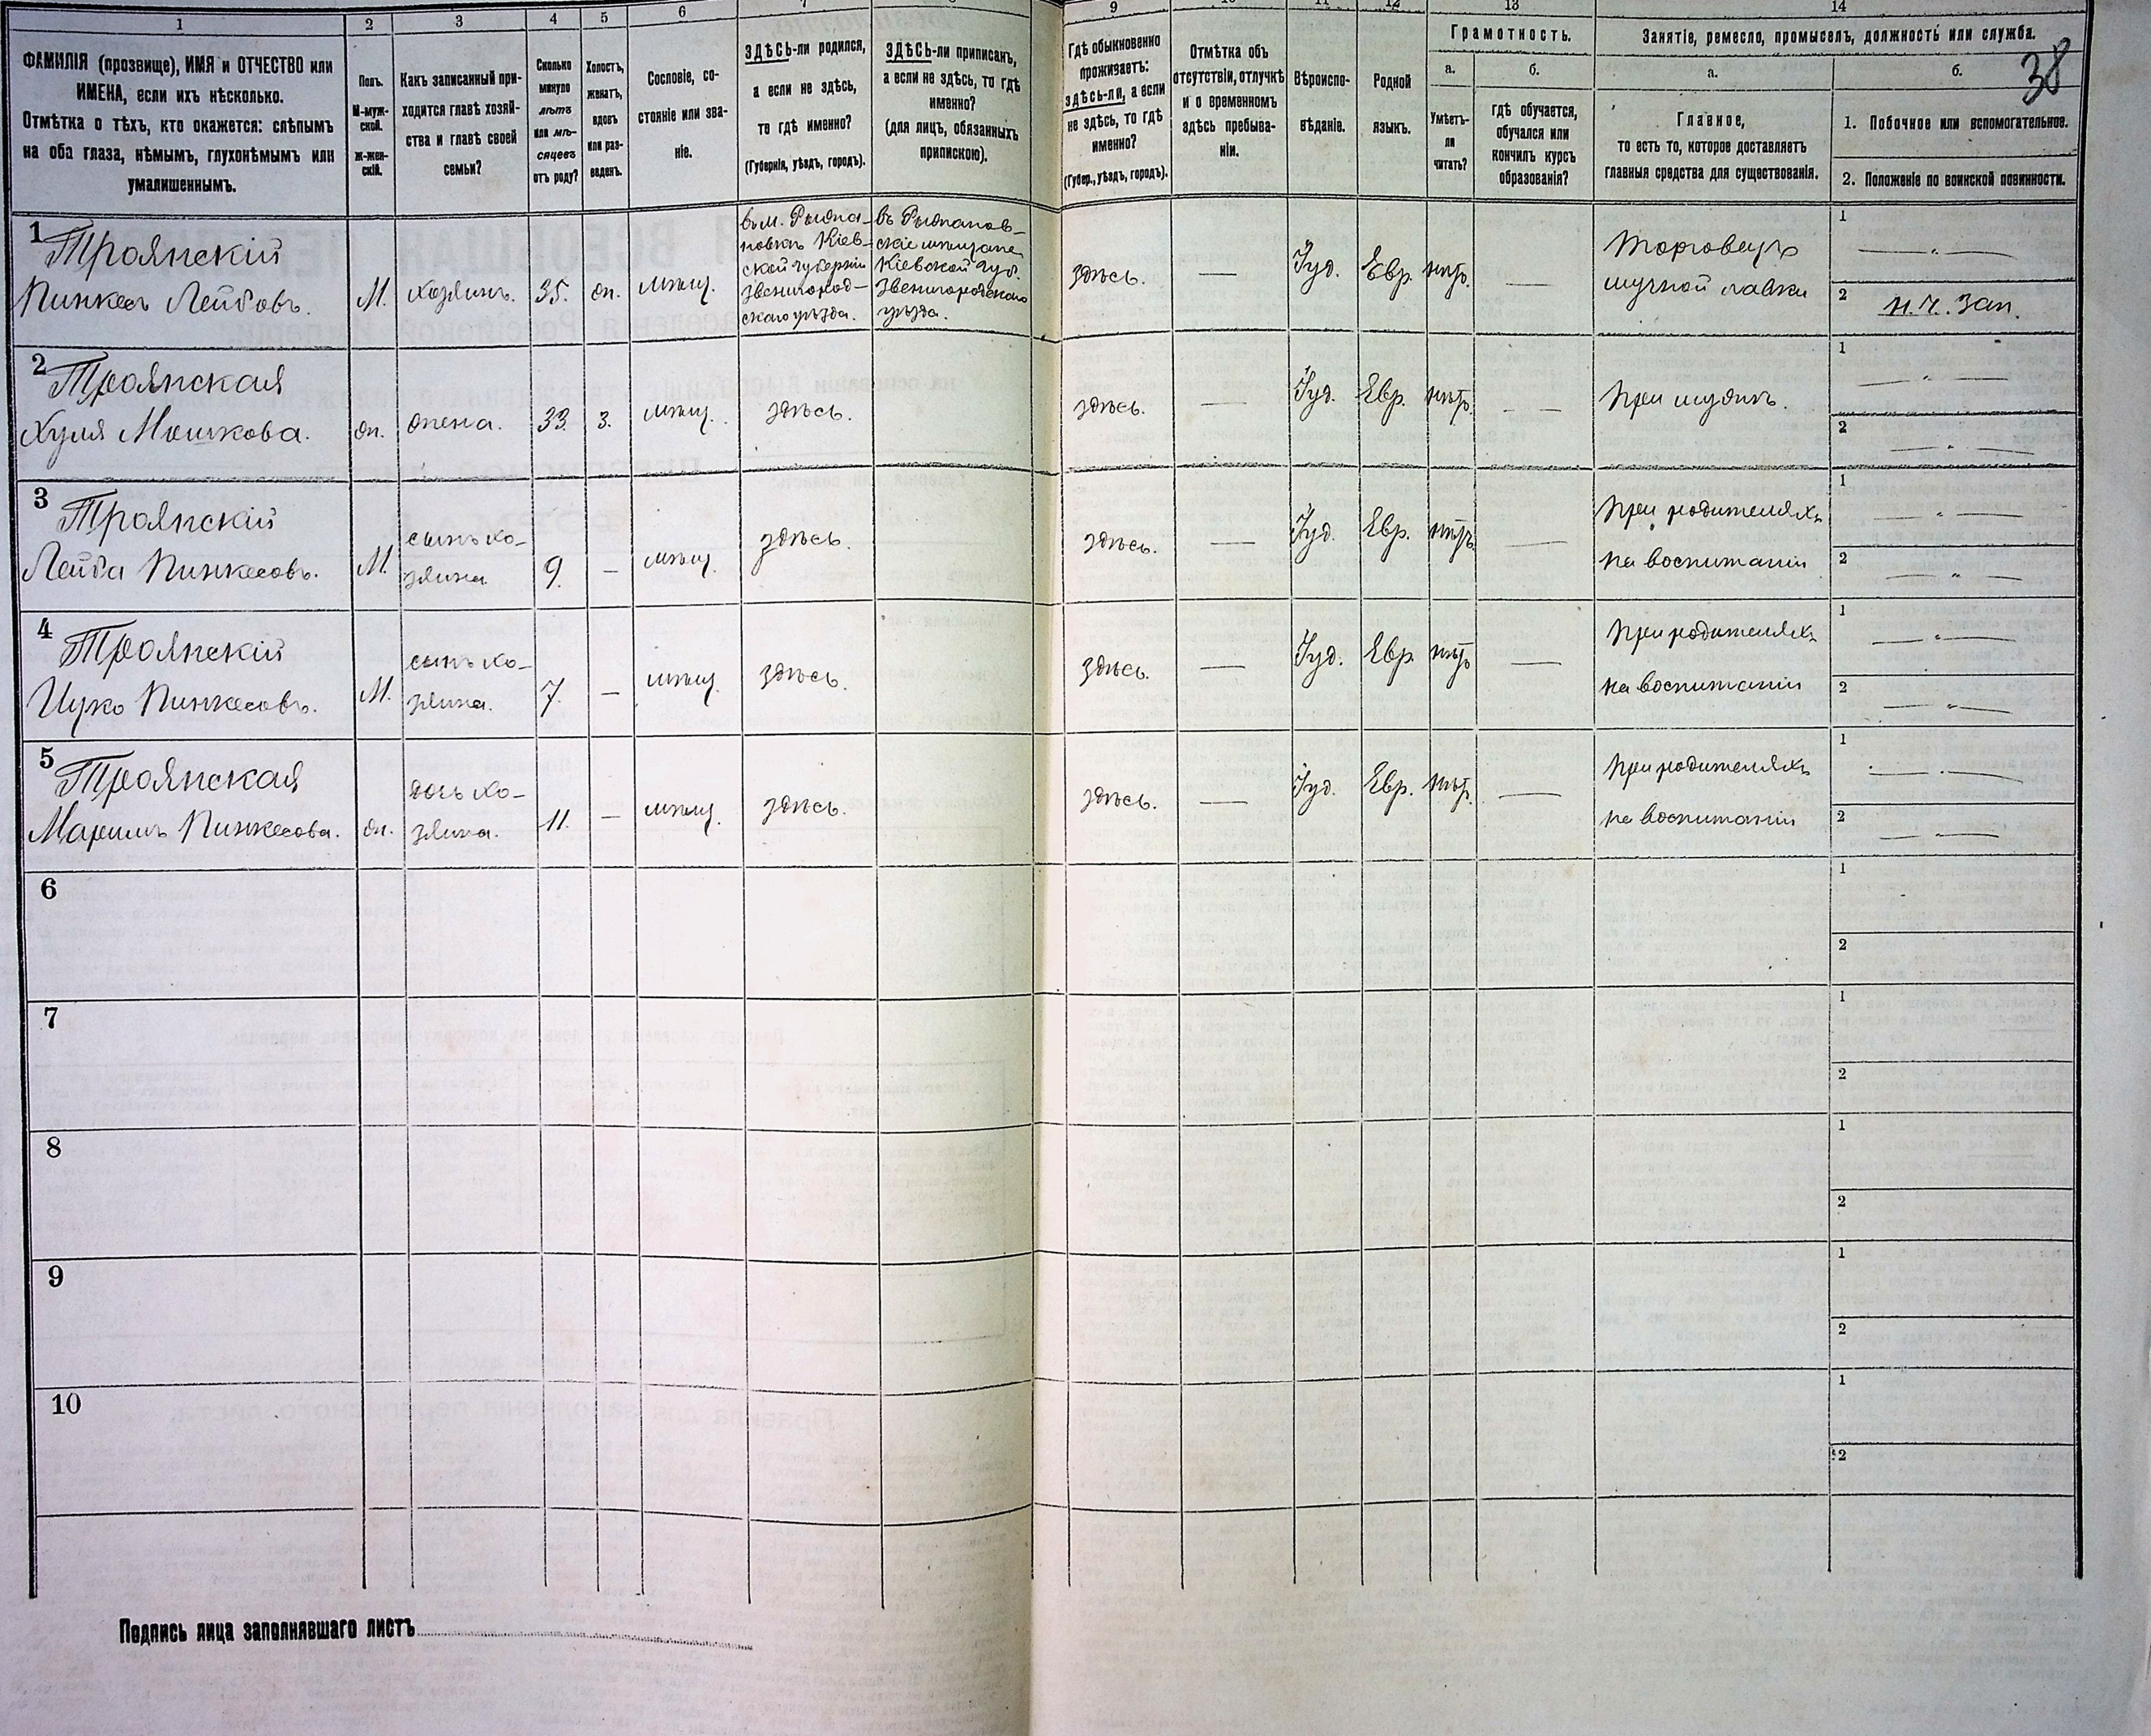 1
2
3
4
5
6
7
8
9
10
11
12
13
14
38
ФАМИЛІЯ (прозвище), ИМЯ и ОТЧЕСТВО или
ИМЕНА, если ихъ нѣсколько.
Отмѣтка о тѣхъ, кто окажется: слѣпымъ
на оба глаза, нѣмымъ, глухонѣмымъ или
умалишеннымъ.
Полъ.
М-муж-
ской.
ж-жен-
скій.
Какъ записанный при-
ходится главѣ хозяй-
ства и главѣ своей
семьи?
Сколько
минуло
лѣтъ
или мѣ-
сяцевъ
отъ роду?
Холостъ,
женатъ,
вдовъ
или раз-
веденъ.
Сословіе, со-
стояніе или зва-
ніе.
ЗДѢСЬ-ли родился,
а если не здѣсь,
то гдѣ именно?
(Губернія, уѣздъ, городъ).
ЗДѢСЬ-ли приписанъ,
а если не здѣсь, то гдѣ
именно?
(для лицъ, обязанныхъ
припискою).
Гдѣ обыкновенно
проживаетъ:
здѣсь-ли, а если
не здѣсь, то гдѣ
именно?
(Губер., уѣздъ, городъ).
Отмѣтка объ
отсутствіи, отлучкѣ
и о временномъ
здѣсь пребыва-
ніи.
Вѣроиспо-
вѣданіе.
Родной
языкъ.
Грамотность.
а.
Умѣетъ-
ли
читать?
б.
гдѣ обучается,
обучался или
кончилъ курсъ
образованія?
Занятіе, ремесло, промыселъ, должность или служба.
а.
Главное,
то есть то, которое доставляетъ
главныя средства для существованія.
б.
1. Побочное или вспомогательное.
2. Положеніе по воинской повинности.
1
Троянскій
Пинкесъ Лейбовъ.
М.
хозяинъ.
35.
жн.
мѣщ.
въ м. Рыжа-
новкѣ Кіев-
ской губерніи
Звенигород-
скаго уѣзда.
въ Рыжанов-
скіе мѣщане
Кіевской губ.
Звенигородскаго
уѣзда.
здѣсь.
—
Іуд.
Евр.
нѣтъ.
—
Торговецъ
мучной лавки
1
— „ —
2
н.ч. зап.
2
Троянская
Хуля Мошкова.
жн.
жена.
33.
з.
мѣщ.
здѣсь.
здѣсь.
—
Іуд.
Евр.
нѣтъ.
—
при мужѣ.
1
— „ —
2
— „ —
3
Троянскій
Лейба Пинкесовъ.
М.
сынъ хо-
зяина
9.
—
мѣщ.
здѣсь.
здѣсь.
—
Іуд.
Евр.
нѣтъ.
—
при родителяхъ
на воспитаніи
1
— „ —
2
— „ —
4
Троянскій
Ицко Пинкесовъ.
М.
сынъ хо-
зяина.
7.
—
мѣщ.
здѣсь.
здѣсь.
—
Іуд.
Евр.
нѣтъ
—
при родителяхъ
на воспитаніи
1
— „ —
2
— „ —
5
Троянская
Маримъ Пинкесова.
жн.
дочь хо-
зяина.
11.
—
мѣщ.
здѣсь.
здѣсь.
—
Іуд.
Евр.
нѣтъ.
—
при родителяхъ
на воспитаніи
1
— „ —
2
— „ —
6
1
2
7
1
2
8
1
2
9
1
2
10
1
2
Подпись лица заполнявшаго листъ